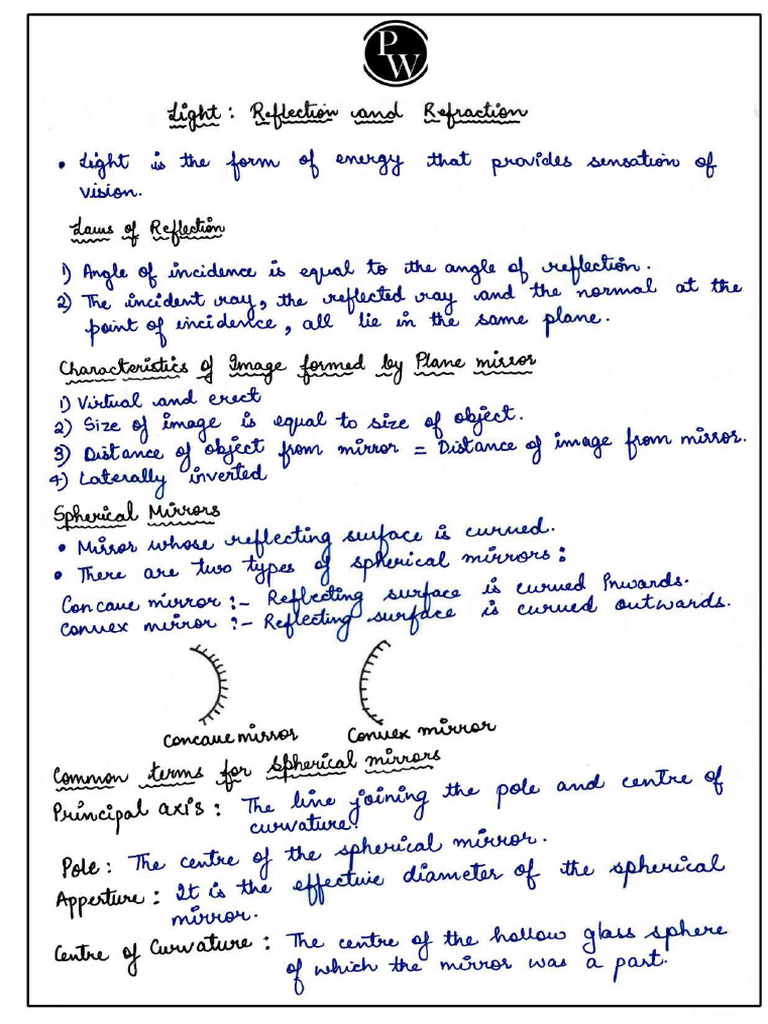 PW
Light : Reflection and Refraction
• Light is the form of energy that provides sensation of
vision.
Laws of Reflection
1) Angle of incidence is equal to the angle of reflection.
2) The incident ray, the reflected ray and the normal at the
point of incidence, all lie in the same plane.
Characteristics of Image formed by Plane mirror
1) Virtual and erect
2) Size of image is equal to size of object.
3) Distance of object from mirror = Distance of image from mirror.
4) Laterally inverted
Spherical Mirrors
• Mirror whose reflecting surface is curved.
• There are two types of spherical mirrors :
Concave mirror :- Reflecting surface is curved Inwards.
Convex mirror :- Reflecting surface is curved outwards.
Concave mirror Convex mirror
Common terms for Spherical mirrors
Principal axis : The line joining the pole and centre of
curvature.
Pole : The centre of the spherical mirror.
Apperture : It is the effective diameter of the spherical
mirror.
Centre of Curvature : The centre of the hollow glass sphere
of which the mirror was a part.